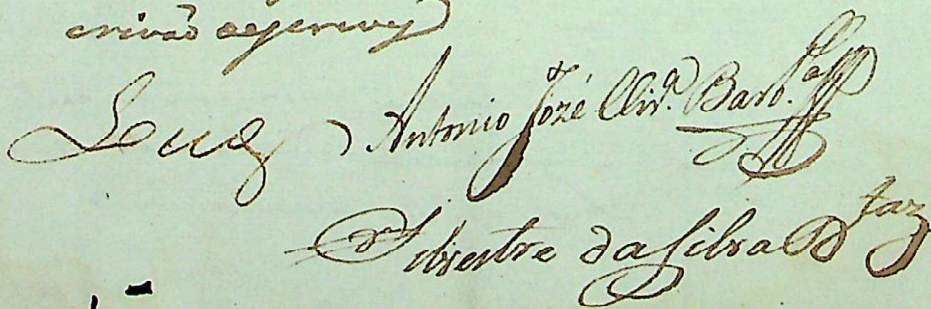 crivaõ q escrevy
Luz Antonio José Olivr.ª Barb.ª
Silvestre da Silva